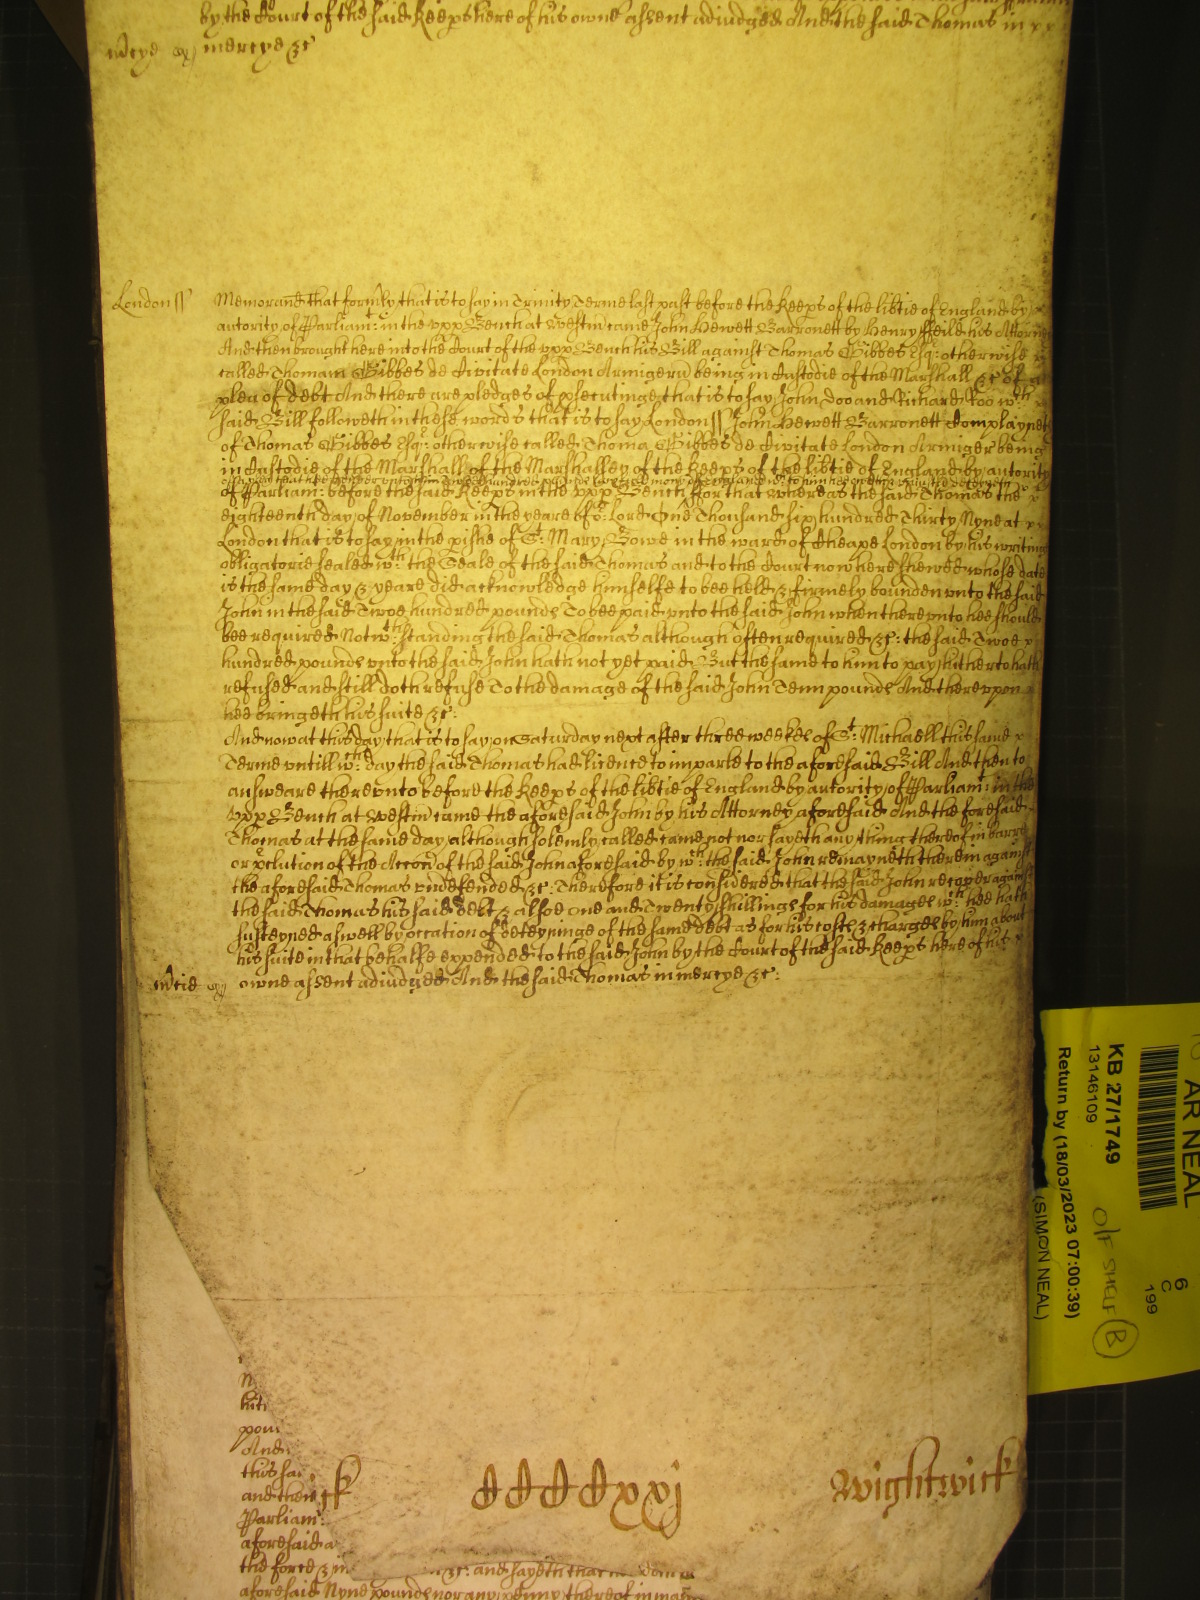 by the Court of the said Keeps here of his owne assent adiudged And the said Thomas in
m̃cye exr mercye &c
London ss Memorand that form̃ly that is to say in Trinity Terme last past before the Keeps of the lib̃tie of England by
autority of Parliamt: in the vpp Bench at Westm̃ came John Hewett Barronett by Henry Feild his Attorney
And then brought here into the Court of the vpp Bench his Bill against Thomas Gibbes Esqr: otherwise
called Thomam Gibbes de Civitate London Armigerũ being in Custodie of the Marshall &c of a
plea of debt And there are pledges of p̱secutinge that is to say John Doo and Richard Roo wch:
said Bill followeth in these words that is to say London ss John Hewett Barronett Complayneth
of Thomas Gibbes Esqr: otherwise called Thoma Gibbes de Civitate London Armiger being
in Custodie of the Marshall of the Marshalsey of the Keeps of the lib̃tie of England by autority
of Parliam: before the said Keeps in the vpp Bench ffor that whereas the said Thomas the
eighteenth day of November in the yeare of or: Lord One Thousand six hundred Thirty Nyne at
London that is to say in the p̱ishe of St: Mary Bowe in the ward of Cheape London by his writing
obligatorie sealed wth: the Seale of the said Thomas and to the Court now here shewed whose date
is the same day & yeare did acknowledge himselfe to bee held & firmely bounden vnto the said
John in the said Twoe hundred pounds To bee paid vnto the said John when therevnto hee should
bee required Notwth:standing the said Thomas although often required &c: the said Twoe
hundred pounds vnto the said John hath not yet paid But the same to him to pay hitherto hath
refused and still doth refuse To the damage of the said John Tenn pounds And therevpon
hee bringeth his suite &c:
And now at this day that is to say on Saturday next after three weekes of St: Michaell this same
Terme vntill wch: day the said Thomas had licence to imparle to the aforesaid Bill And then to
answeare therevnto before the Keeps of the lib̃tie of England by autority of Parliamt: in the
vpp Bench at Westm̃ came the aforesaid John by his Attorney aforesaid And the foresaid
Thomas at the same day although solemly called came not nor sayeth any thing thereof in barre
or p̱clution of the Accon̄ of the said John aforesaid by wch: the said John remayneth therein against
the aforesaid Thomas vndefended &c: Therefore it is considered that the said John recover against
the said Thomas his said debt & alsoe one and Twenty shillings for his damages wch: hee hath
susteyned aswell by occation of deteyninge of the same debt as for his costs & charges by him about
his suite in that behalfe expended to the said John by the Court of the said Keeps here of his
m̃cie exr owne assent adiudged And the said Thomas in mercye &c:
pou
And
this sai
and then
Parliam:
aforesaid
the force &
&c: and sayeth that
aforesaid Nyne pounds nor any penny thereof in
ck CCCCxxj Wightwick
TO AR NEAL
6
C
199
KB 27/1749
13146109
Return by (18/03/2023 07:00:39)
(SIMON NEAL)
O/F SHELF B